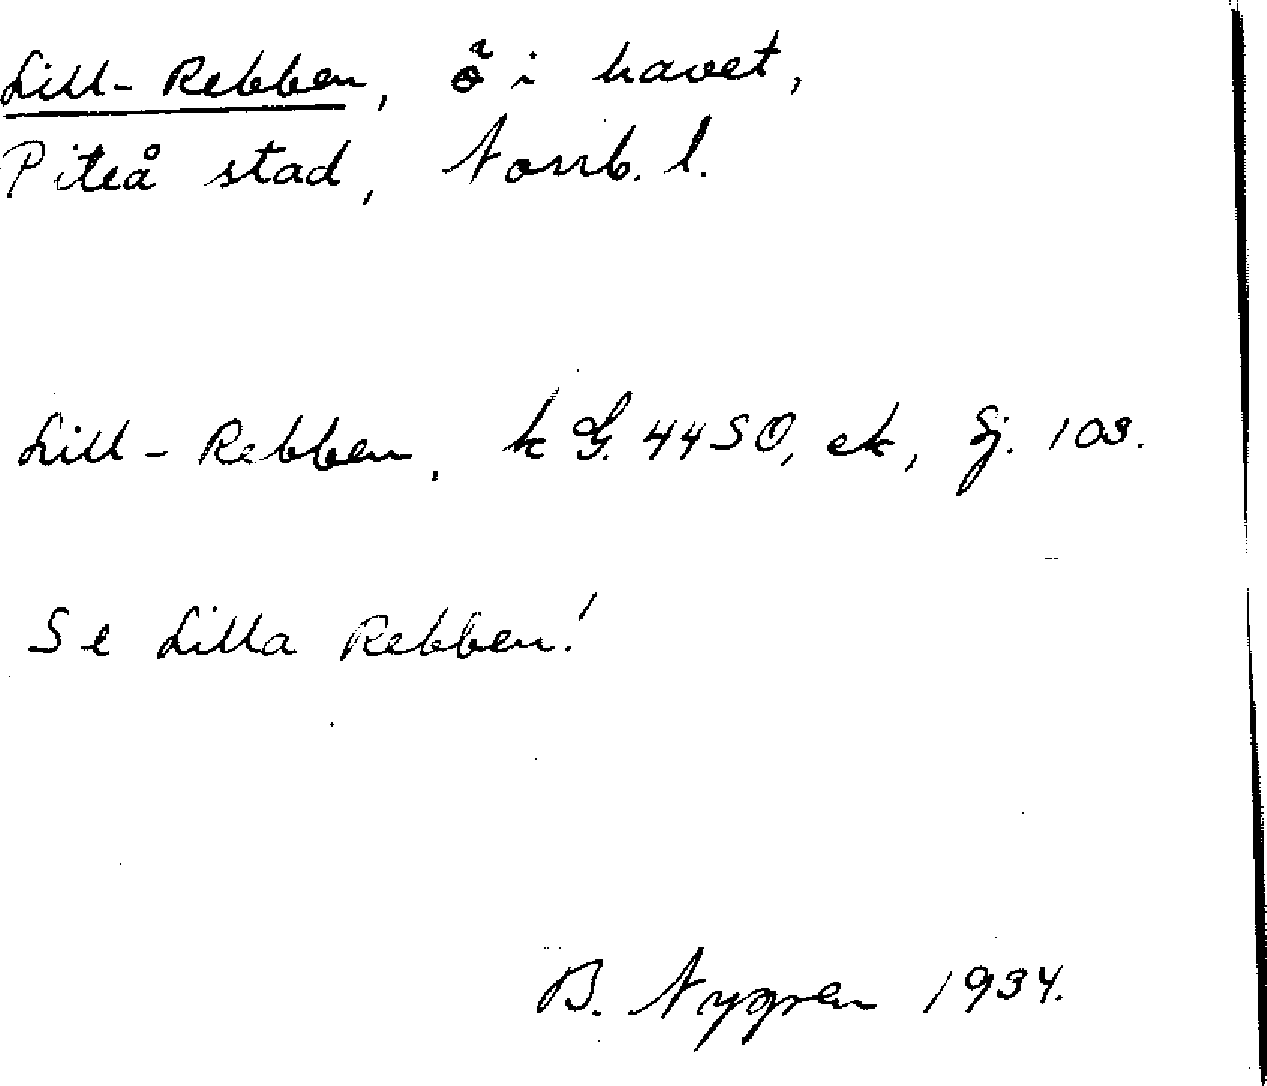 Lill-Rebben, ö i havet,
Piteå stad, Norrb. l.
Lill-Rebben, k G. 4450, ek, Sj. 103.
Se Lilla Rebben!
B. Nygren 1934.